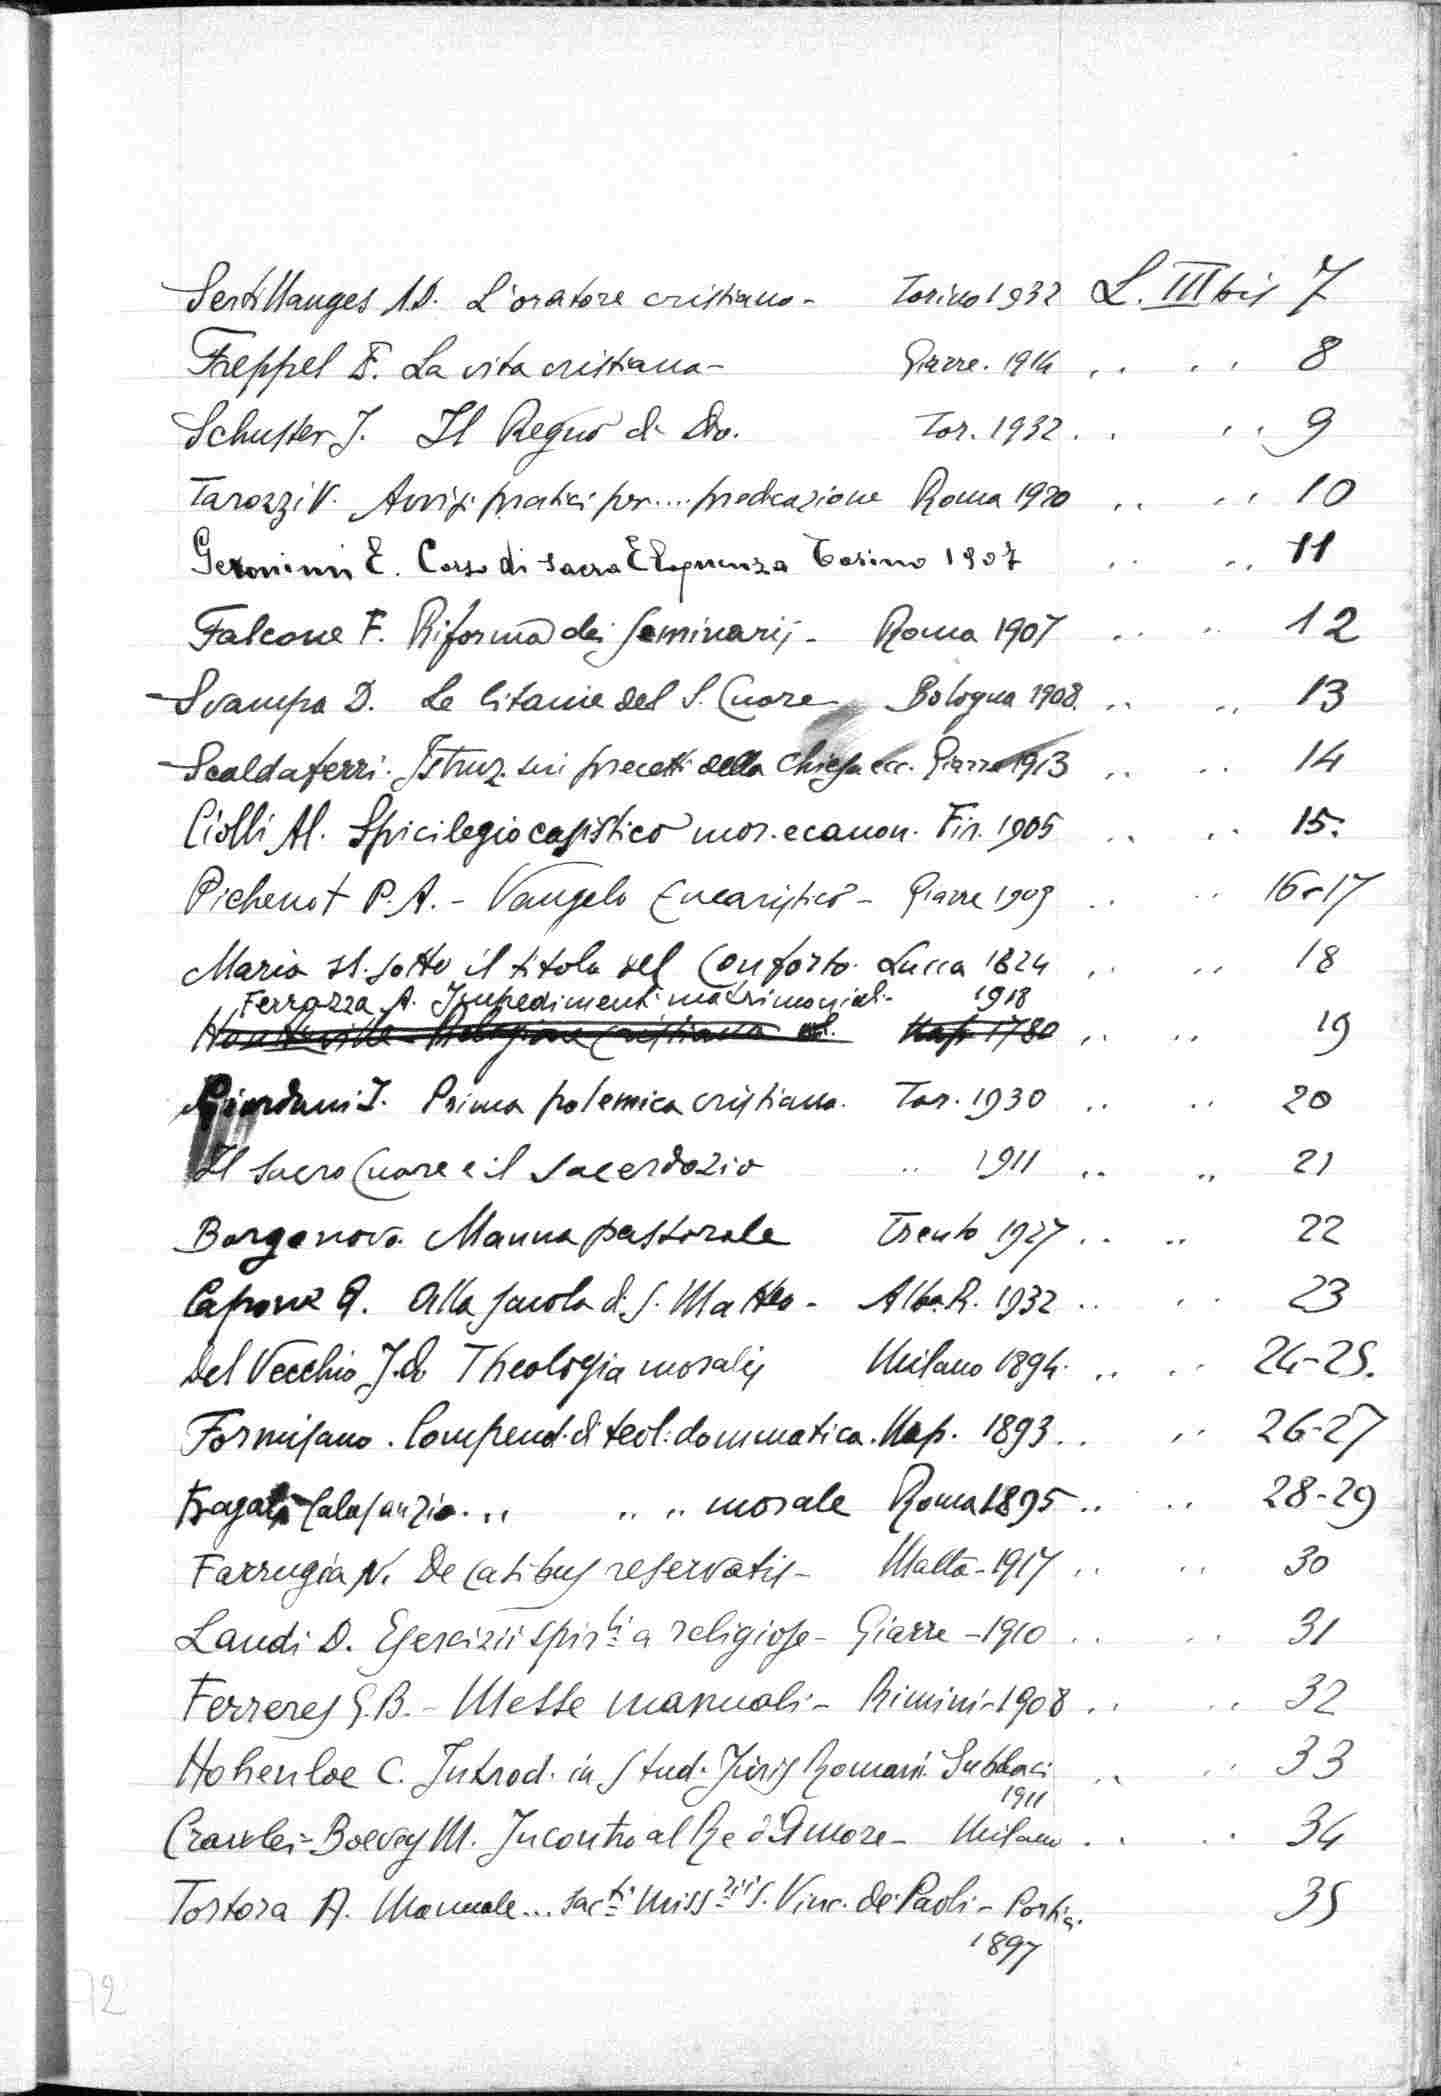 Sertillanges A.D. L'oratore cristiano - Torino 1932 L. III bis 7
Freppel E. La vita cristiana - Giarre. 1914 " " 8
Schuster J. Il Regno di Dio. Tor. 1932 " " 9
Tarozzi V. Avvisi pratici per.... predicazione Roma 1920 " " 10
Geronimi E. Corso di sacra Eloquenza Torino 1907 " " 11
Falcone F. Riforma dei seminarij - Roma 1907 " " 12
Svampa D. Le litanie del S. Cuore - Bologna 1908. " " 13
Scaldaferri. Istruz. sui precetti della Chiesa ecc. Giarre 1913 " " 14
Ciolli Al. Spicilegio casistico mor. e canon. Fir. 1905 " " 15.
Pichenot P. A. - Vangelo Eucaristico - Giarre 1909 " " 16-17
Maria SS. sotto il titolo del Conforto. Lucca 1824 " " 18
Ferrazza A. Impedimenti matrimoniali - 1918
Houtteville - Religione Cristiana Nap. 1780 " " 19
Giordani I. Prima polemica cristiana. Tor. 1930 " " 20
Il Sacro Cuore e il Sacerdozio " 1911 " " 21
Borgonovo. Manna pastorale Trento 1927 " " 22
Capone G. Alla scuola di S. Matteo - Alba R. 1932 " " 23
Del Vecchio J. Theologia moralis Milano 1894. " " 24-25.
Formisano. Compend. di teol. dommatica. Nap. 1893 " " 26-27
Calasanzio. " " " morale Roma 1895 " " 28-29
Farrugia N. De casibus reservatis - Malta - 1917 " " 30
Landi D. Esercizii spir.li a religiose - Giarre - 1910 " " 31
Ferreres G.B. - Messe manuali - Rimini - 1908 " " 32
Hohenloe C. Introd. in stud. Juris Romani. Sublaci " " 33
1911
Crawlei-Boevey M. Incontro al Re d'Amore - Milano " " 34
Tortora A. Manuale... sac.ti Miss.rii S. Vinc. de' Paoli - Portici. 35
1897
72